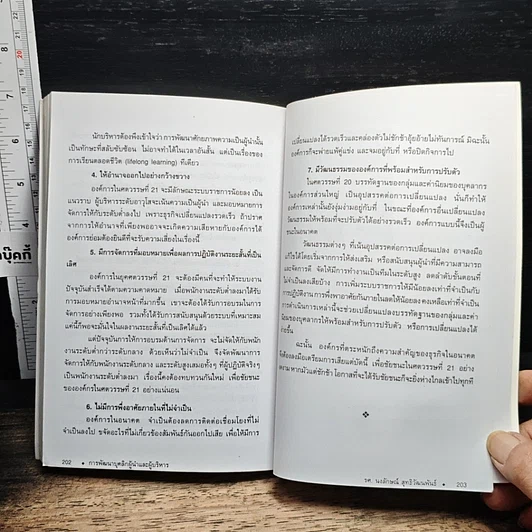 นักบริหารต้องพึงเข้าใจว่า การพัฒนาศักยภาพความเป็นผู้นำนั้น
เป็นทักษะที่สลับซับซ้อน ไม่อาจทำได้ในเวลาอันสั้น แต่เป็นเรื่องของ
การเรียนตลอดชีวิต (lifelong learning) ทีเดียว
4. ให้อำนาจออกไปอย่างกว้างขวาง
องค์การในศตวรรษที่ 21 จะมีลักษณะระบบราชการน้อยลง เป็น
แนวราบ ผู้บริหารระดับอาวุโสจะเน้นความเป็นผู้นำ และมอบหมายการ
จัดการให้กับระดับต่ำลงไป เพราะธุรกิจเปลี่ยนแปลงรวดเร็ว ถ้าปราศ
จากการให้อำนาจที่เพียงพออาจจะเกิดความเสียหายกับองค์การได้
องค์การย่อมต้องยินดีที่จะรับความเสี่ยงในเรื่องนี้
5. มีการจัดการที่มอบหมายเพื่อผลการปฏิบัติงานระยะสั้นที่เป็น
เลิศ
องค์การในยุคศตวรรษที่ 21 จะต้องมีคนที่จะทำให้ระบบงาน
ปัจจุบันสำเร็จได้ตามความคาดหมาย เมื่อพนักงานระดับต่ำลงมาได้รับ
การมอบหมายอำนาจหน้าที่มากขึ้น เขาจะต้องได้รับการอบรมในการ
จัดการอย่างเพียงพอ รวมทั้งได้รับการสนับสนุนด้วยระบบที่เหมาะสม
แค่นี้ก็พอจะมั่นใจในผลงานระยะสั้นที่เป็นเลิศได้แล้ว
แต่ปัจจุบันการให้การอบรมด้านการจัดการ จะไม่จัดให้กับพนัก
งานระดับต่ำกว่าระดับกลาง ด้วยเห็นว่าไม่จำเป็น จึงจัดพัฒนาการ
จัดการให้กับพนักงานระดับกลาง และระดับสูงเสมอทั้งๆ ที่ผู้ปฏิบัติจริงๆ
เป็นพนักงานระดับต่ำลงมา เรื่องนี้คงต้องทบทวนกันใหม่ เพื่อชัยชนะ
ขององค์การในศตวรรษที่ 21 อย่างแน่นอน
6. ไม่มีการพึ่งอาศัยภายในที่ไม่จำเป็น
องค์การในอนาคต จำเป็นต้องลดการติดต่อเชื่อมโยงที่ไม่
จำเป็นลงไป ขจัดอะไรที่ไม่เกี่ยวข้องสัมพันธ์กันออกไปเสีย เพื่อให้มีการ
202 • การพัฒนาบุคลิกผู้นำและผู้บริหาร
เปลี่ยนแปลงได้รวดเร็วและคล่องตัวไม่ชักช้าอุ้ยอ้ายไม่ทันการณ์ มิฉะนั้น
องค์การก็จะพ่ายแพ้คู่แข่ง และจมอยู่กับที่ หรือปิดกิจการไป
7. มีวัฒนธรรมขององค์การที่พร้อมสำหรับการปรับตัว
ในศตวรรษที่ 20 บรรทัดฐานของกลุ่มและค่านิยมของบุคลากร
ในองค์การส่วนใหญ่ เป็นอุปสรรคต่อการเปลี่ยนแปลง นั่นก็ทำให้
องค์การเหล่านั้นยังงุ่มง่ามอยู่กับที่ ในขณะที่องค์การอื่นเปลี่ยนแปลง
วัฒนธรรมให้พร้อมที่จะปรับตัวได้อย่างรวดเร็ว องค์การแบบนี้จึงเป็นผู้
ชนะในอนาคต
วัฒนธรรมต่างๆ ที่เน้นอุปสรรคต่อการเปลี่ยนแปลง อาจลงมือ
แก้ไขได้โดยเริ่มจากการให้ส่งเสริม หรือสนับสนุนผู้นำที่มีความสามารถ
และจัดการดี จัดให้มีการทำงานเป็นทีมในระดับสูง ลดลำดับขั้นตอนที่
ไม่จำเป็นลงเสียบ้าง การเพิ่มระบบราชการให้มีน้อยลงเท่าที่จำเป็นกับ
การปฏิบัติงาน การพึ่งพาอาศัยกันภายในลดให้น้อยลงคงเหลือเท่าที่จำเป็น
การดำเนินการเหล่านี้จะช่วยเปลี่ยนแปลงบรรทัดฐานของกลุ่มและค่า
นิยมของบุคลากรให้พร้อมสำหรับการปรับตัว หรือการเปลี่ยนแปลงได้
ง่ายขึ้น
ฉะนั้น องค์การที่ตระหนักถึงความสำคัญของธุรกิจในอนาคต
ต้องลงมือเตรียมการเสียแต่บัดนี้ เพื่อชัยชนะในศตวรรษที่ 21 อย่าง
งดงาม หากมัวแต่ชักช้า โอกาสที่จะได้รับชัยชนะก็จะยิ่งห่างไกลเข้าไปทุกที
รศ. นงลักษณ์ สุทธิวัฒนพันธ์ • 203